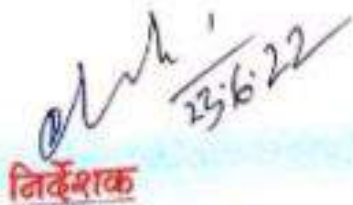 23.6.22
निर्देशक